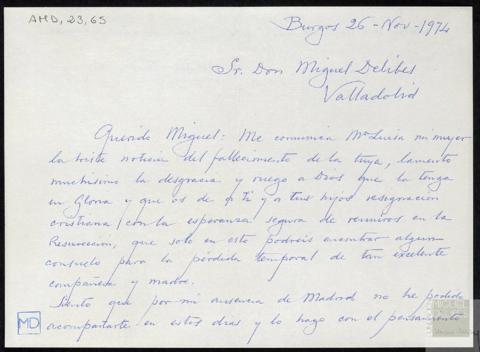 AMD, 23, 65
Burgos 26-Nov-1974
Sr. Don Miguel Delibes
Valladolid
Querido Miguel: Me comunica Mª Luisa mi mujer
la triste noticia del fallecimiento de la tuya, lamento
muchisimo la desgracia y ruego a Dios que la tenga
en Gloria y que os de a ti y a tus hijos resignacion
cristiana, con la esperanza segura de reuniros en la
Resurreccion, que solo en esto podreis encontrar algun
consuelo para la pérdida temporal de tan excelente
compañera y madre.
Siento que por mi ausencia de Madrid no he podido
acompañarte en estos dias y lo hago con el pensamiento
MD